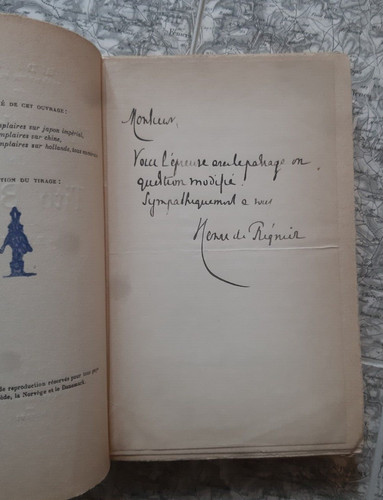 É DE CET OUVRAGE :
mplaires sur japon impérial,
emplaires sur chine,
emplaires sur hollande, tous numérotés
TION DU TIRAGE :
de reproduction réservés pour tous pays
ède, la Norvège et le Danemark.
Monsieur,
Voici l'épreuve avec le passage en
question modifié.
Sympathiquement à vous
Henri de Régnier